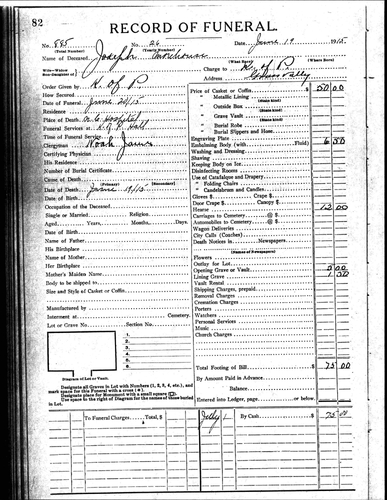 82
RECORD OF FUNERAL.
No. 885 No. 26 Date, June 19 1915
(Total Number) (Yearly Number)
Name of Deceased, Joseph
(What Race) (Where Born)
Wife—Widow
Son—Daughter of
Charge to K of P.
Address
Order Given by K of P
How Secured
Date of Funeral June 20/15
Residence
Place of Death, Hospital
Funeral Services at K of P Hall
Clergyman Noah James
Certifying Physician
His Residence
Number of Burial Certificate
Cause of Death
(Primary) (Secondary)
Date of Death June 19/15
Date of Birth
Occupation of the Deceased
Single or Married Religion
Aged, Years, Months, Days
Date of Birth
Name of Father
His Birthplace
Name of Mother
Her Birthplace
Mother's Maiden Name
Body to be shipped to
Size and Style of Casket or Coffin
Manufactured by
Interment at Cemetery.
Lot or Grave No. Section No.
1.
2.
3.
4.
5.
6.
Diagram of Lot or Vault.
Designate all Graves in Lot with Numbers (1, 2, 3, 4, etc.), and
mark space for this Funeral with an
Designate place for Monument with a small square
Use space to the right of Diagram for names of those buried
in Lot.
Price of Casket or Coffin $ 50 00
" Metallic Lining
(State kind)
" Outside Box
(State kind)
" Grave Vault
(State kind)
" Burial Robe
(State kind)
" Burial Slippers and Hose
Engraving Plate
Embalming Body (with Fluid) 6 50
Washing and Dressing
Shaving
Keeping Body on Ice
Disinfecting Rooms
Use of Catafalque and Drapery
" Folding Chairs
" Candelabrum and Candles
Gloves $ Crape $
Door Crape $ Canopy $
Hearse 12 00
Carriages to Cemetery @ $
Automobiles to Cemetery @ $
Wagon Deliveries
City Calls (Coaches)
Death Notices in Newspapers
(Names of Newspapers)
Flowers
Outlay for Lot
Opening Grave or Vault
Lining Grave 1 50
Vault Rental
Shipping Charges, prepaid
Removal Charges
Cremation Charges
Porters
Watchers
Personal Services
Music
Church Charges
Total Footing of Bill $ 75 00
By Amount Paid in Advance
Balance $
Entered into Ledger, page or below.
To Funeral Charges Total, $ July 1 By Cash $ 75 00